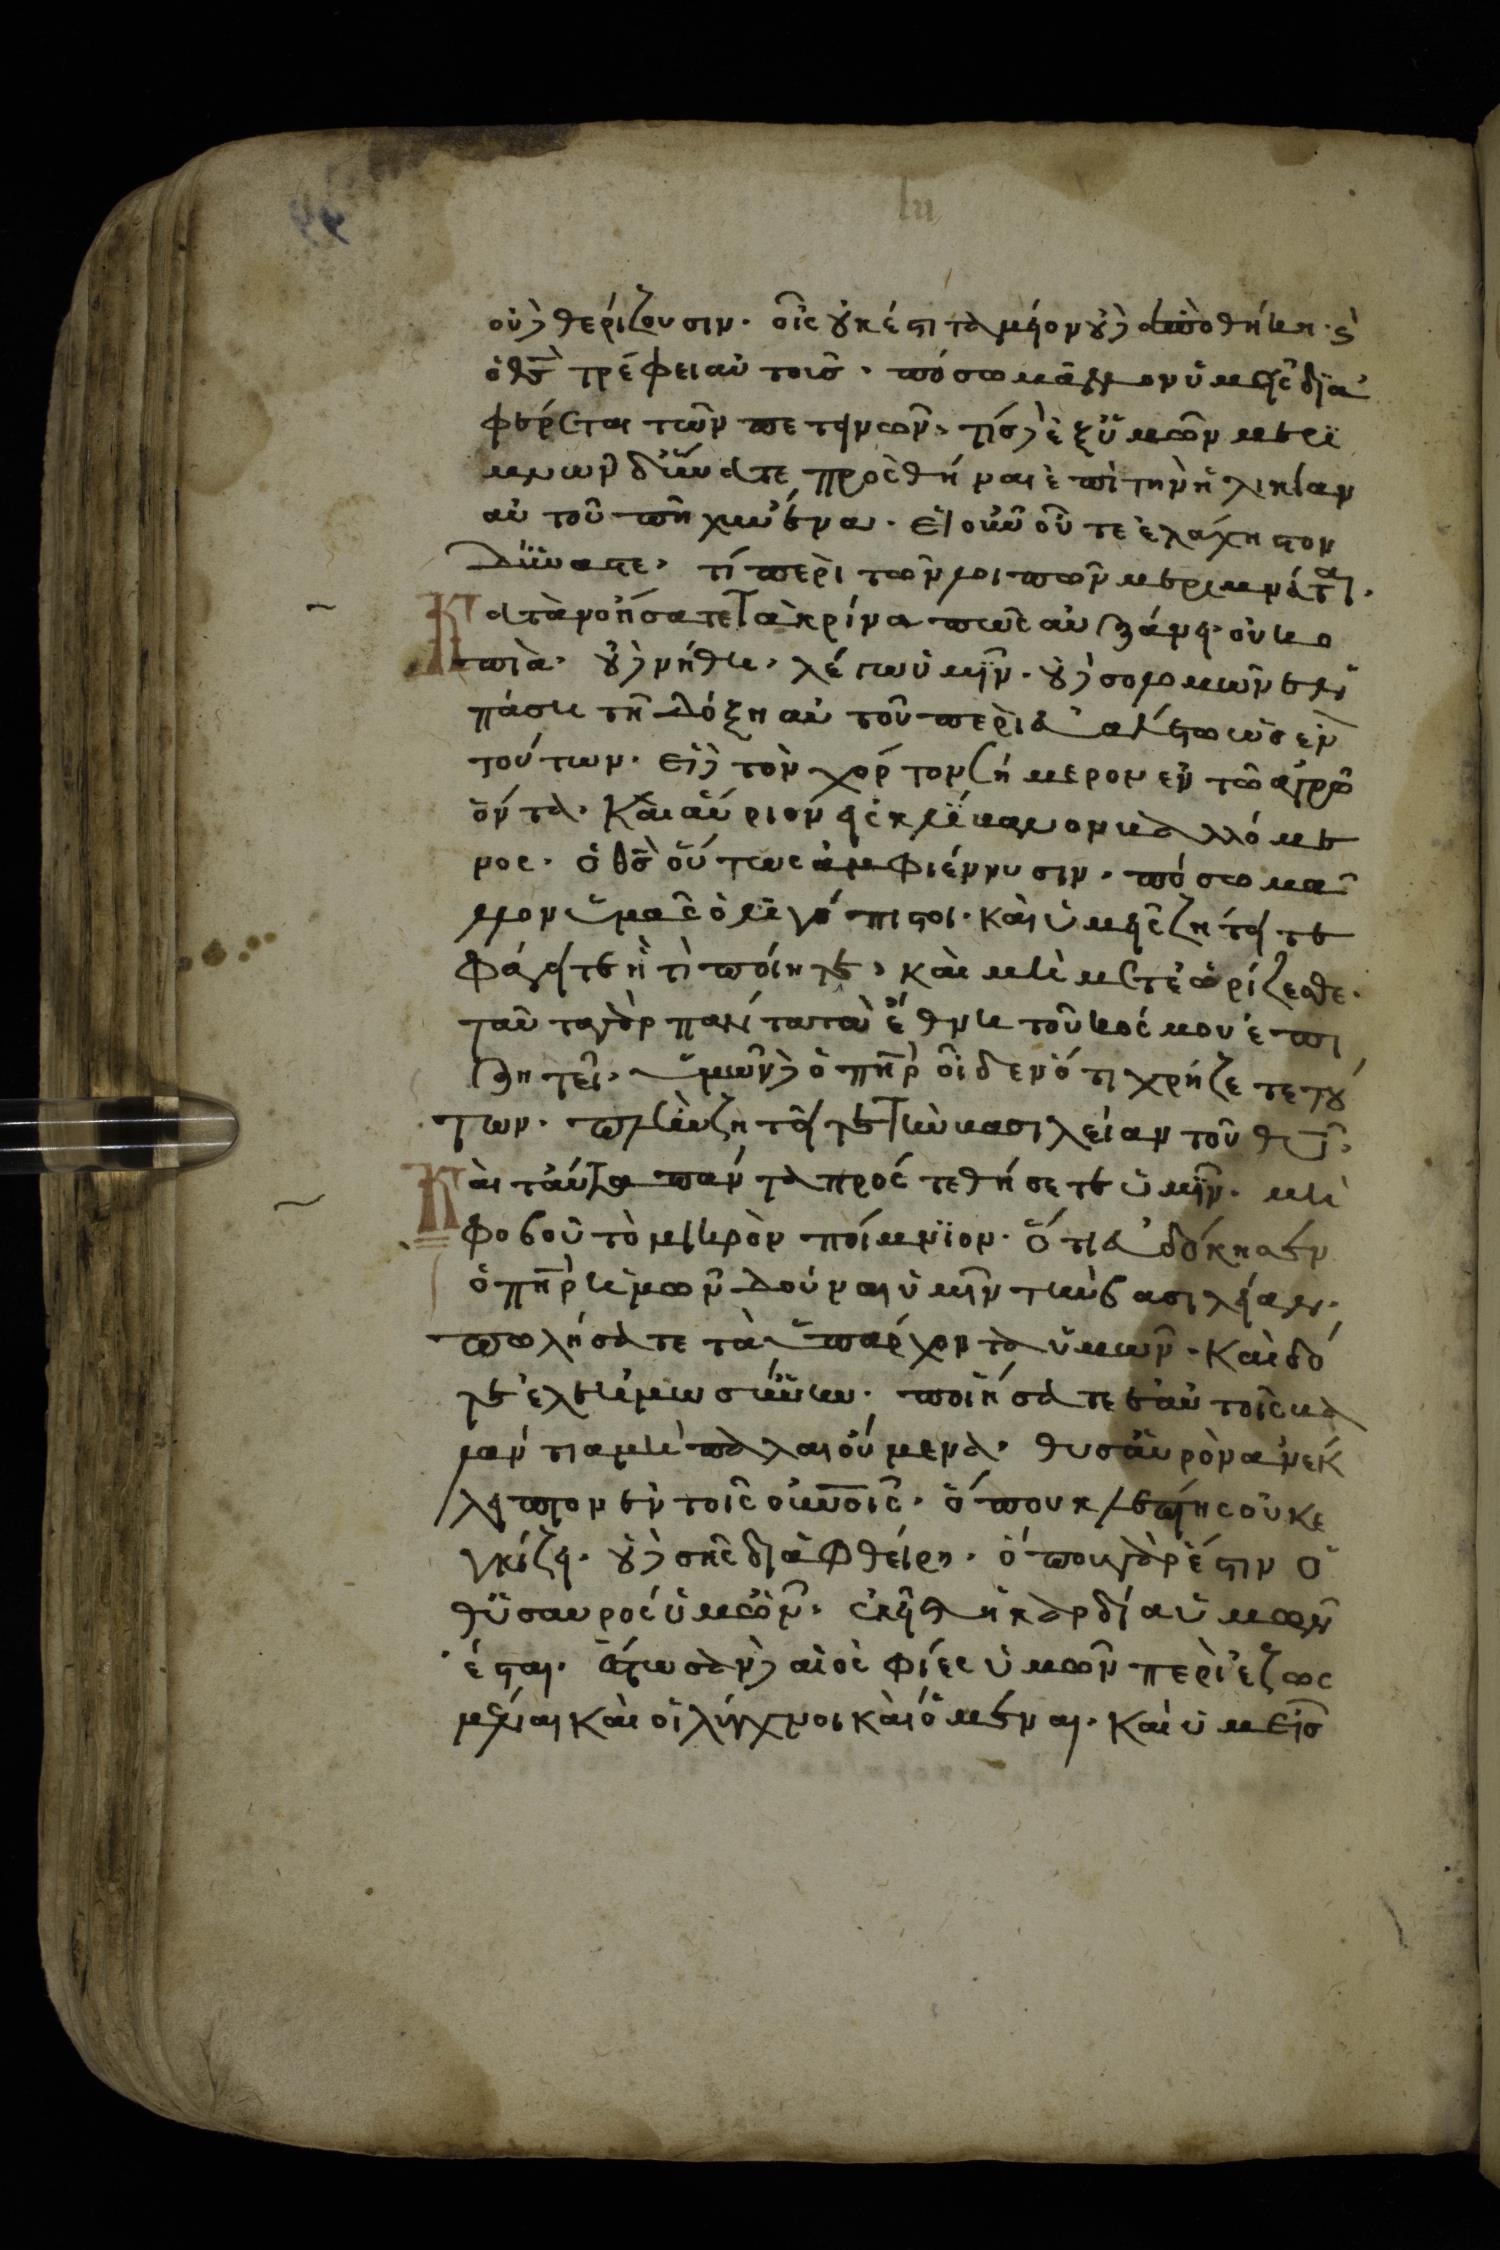 οὐδὲ θερίζουσιν· οἷς οὐκ έστι ταμεῖον οὐδὲ ἀποθήκη· καὶ
ὁ θς τρέφει αὐτοῖσ· πόσω μᾶλλον ὑμεῖς δϊα
φέρεται τῶν πετηνῶν· τίς δὲ ἐξ ὑμῶν μερϊ
μνων δύνατε προσθήναι ἐπὶ τὴν ἡληκίαν
αὐτοῦ πῆχυν ένα· εἰ οὖν οὔτε ἐλάχηστον
δύναστε· τί περὶ τῶν λοιπῶν μεριμνάται·
Κατανοήσατε τὰ κρίνα πῶς αὐξάνει· οὐ κο
πιὰ· οὐδὲ νήθει· λέγω ὑμῖν· οὐδὲ σολομῶν ἐν
πάσει τῆ δόξη αὐτοῦ περιεβάλετω ὡς ἐν
τούτων· εἰ δὲ τὸν χόρτον σήμερον ἐν τῶ αγρῶ
ὄντα· Καὶ αὔριον εἰς κλϊβανον βαλλόμε
νος· ὁ θς οὕτως ἀμφιέννυσιν· πόσω μα
λλον ὑμας ὀλϊγόπιστοι· καὶ ὑμεῖς ζητεῖτε
φάγητε ἢ τὶ ποίητε· καὶ μὴ μετεωρίζεσθε·
ταῦτα γὰρ πάντα τὰ ἔθνη τοῦ κόσμου ἐπι
ζητεῖ· ὑμῶν δὲ ὁ πηρ οἶδεν ότι χρήζετε τού
των· πλὴν ζητεῖτε τὴν βασιλείαν τοῦ θυ·
Καὶ ταύτα πάντα προστεθήσετε ὑμῖν· μὴ
φοβοῦ τὸ μικρὸν ποίμνϊον· ὅτι ἐυδόκησεν
ὁ πηρ ὑμῶν δούναι ὑμῖν τὴν βασιλείαν·
πωλήσατε τὰ ὑπάρχοντα ὑμῶν· Καὶ δό
τε ἐλεημωσύνην· ποιήσατε εαυτοῖς βα
λάντια μὴ παλαιούμενα· θυσαυρὸν ἀνέκ
λειπτον ἐν τοῖς οὐνοῖς· ὅπου κλέπτης οὐκ ε
γκίζει· οὐδὲ σὴς διαφθείρη· ὅπου γὰρ έστιν ὁ
θϋσαυρός ὑμῶν· ἐκεῖ καὶ ἡ καρδία ὑμῶν
έσται· ἔστωσαν δὲ αἱ ὀσφίες ὑμῶν περιεζωσ
μέναι καὶ οἱ λύχνοι καιόμεναι· Καὶ ὑμεῖσ